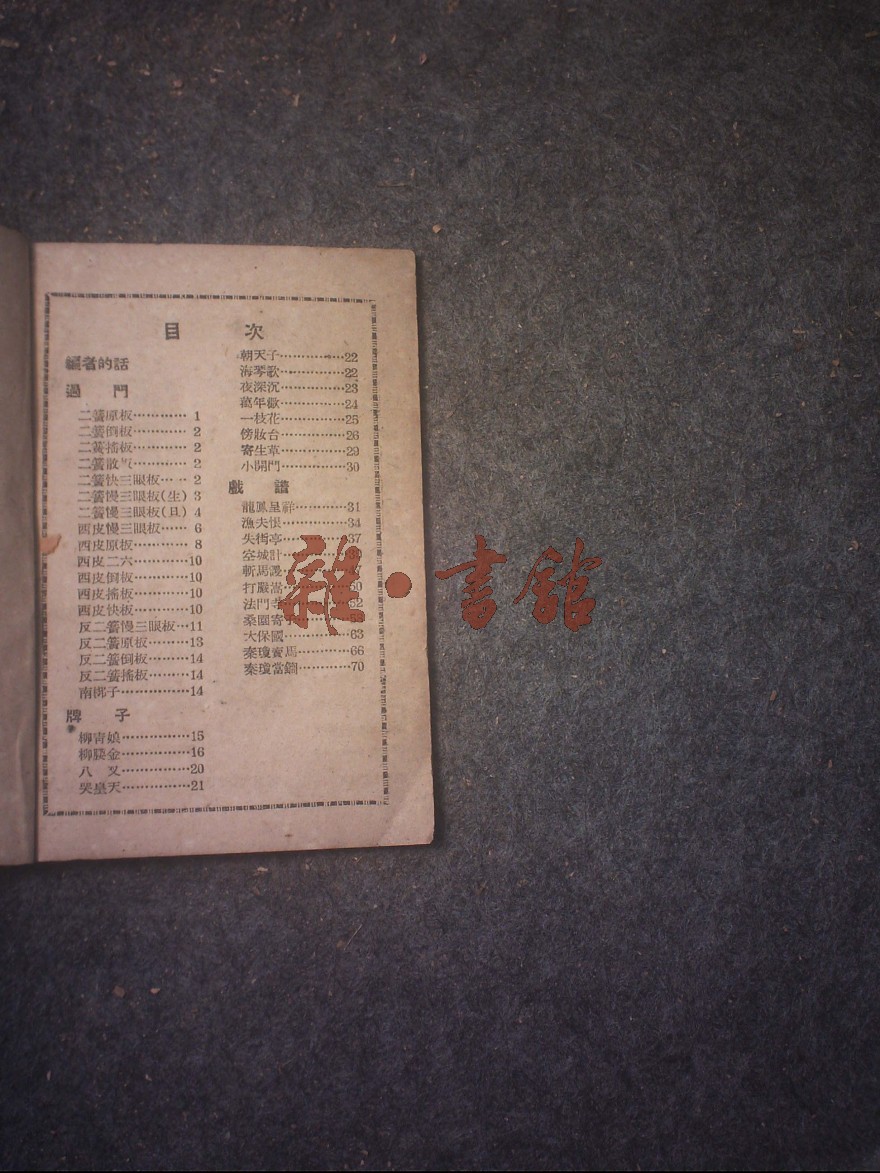 目 次
編者的話
過 門
二簧原板………… 1
二簧倒板………… 2
二簧搖板………… 2
二簧散板………… 2
二簧快三眼板…… 2
二簧慢三眼板(生) 3
二簧慢三眼板(旦) 4
西皮慢三眼板…… 6
西皮原板………… 8
西皮二六…………10
西皮倒板…………10
西皮搖板…………10
西皮快板…………10
反二簧慢三眼板…11
反二簧原板………13
反二簧倒板………14
反二簧搖板………14
南梆子……………14
牌 子
柳青娘……………15
柳腰金……………16
八 叉……………20
哭皇天……………21
朝天子……………22
海琴歌……………22
夜深沉……………23
萬年歡……………24
一枝花……………25
傍妝台……………26
寄生草……………29
小開門……………30
戲 譜
龍鳳呈祥…………31
漁夫恨……………34
失街亭……………37
空城計……………
斬馬謖……………
打嚴嵩……………50
法門寺……………52
桑園寄子…………58
大保國……………63
秦瓊賣馬…………66
秦瓊當鐧…………70
雜·書館